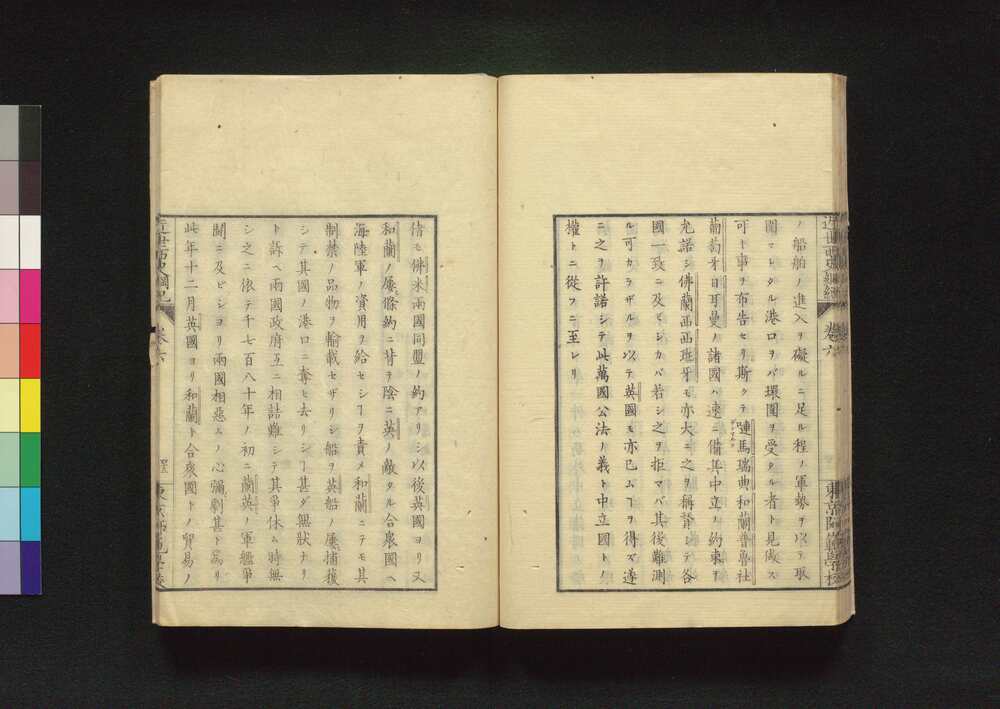 ノ船舶ノ進入ヲ礙ルニ足ル程ノ軍勢ヲ以テ取
圍マレタル港口ヲバ環圍ヲ受タル者ト見做ス
可ト事ヲ布告セリ斯クテ嗹馬瑞典和蘭普魯社
葡萄牙日耳曼ノ諸國ハ速ニ備其中立ノ約束ヲ
允諾シ佛蘭西西班牙モ亦大ニ之ヲ稱賛シテ各
國一致ニ及ビシカバ若シ之ヲ拒マバ其後難測
ル可カラザルヲ以テ英國モ亦已ムヿヲ得ズ遂
ニ之ヲ許諾シテ此萬國公法ノ義ト中立國トノ
權トニ從フニ至レリ
近世西史綱紀
卷六
東京師範學校
偖モ佛米兩國同盟ノ約アリシ以後英國ヨリ又
和蘭ノ屢條約ニ背ヲ陰ニ英ノ敵タル合衆國ヘ
海陸軍ノ資用ヲ給セシヿヲ責メ和蘭ニテモ其
制禁ノ品物ヲ輸載セザリシ船ヲ英船ノ屢捕獲
シテ其國ノ港口ニ奪ヒ去リシヿ甚ダ無狀ナリ
ト訴ヘ兩國政府互ニ相詰難シテ其爭休ム時無
シ之ニ依テ千七百八十年ノ初ニ蘭英ノ軍艦爭
鬪ニ及ビシヨリ兩國相惡ムノ心彌劇甚ト爲リ
此年十二月英國ヨリ和蘭ト合衆國トノ貿易ノ
近世西史綱紀
卷六
東京師範學校